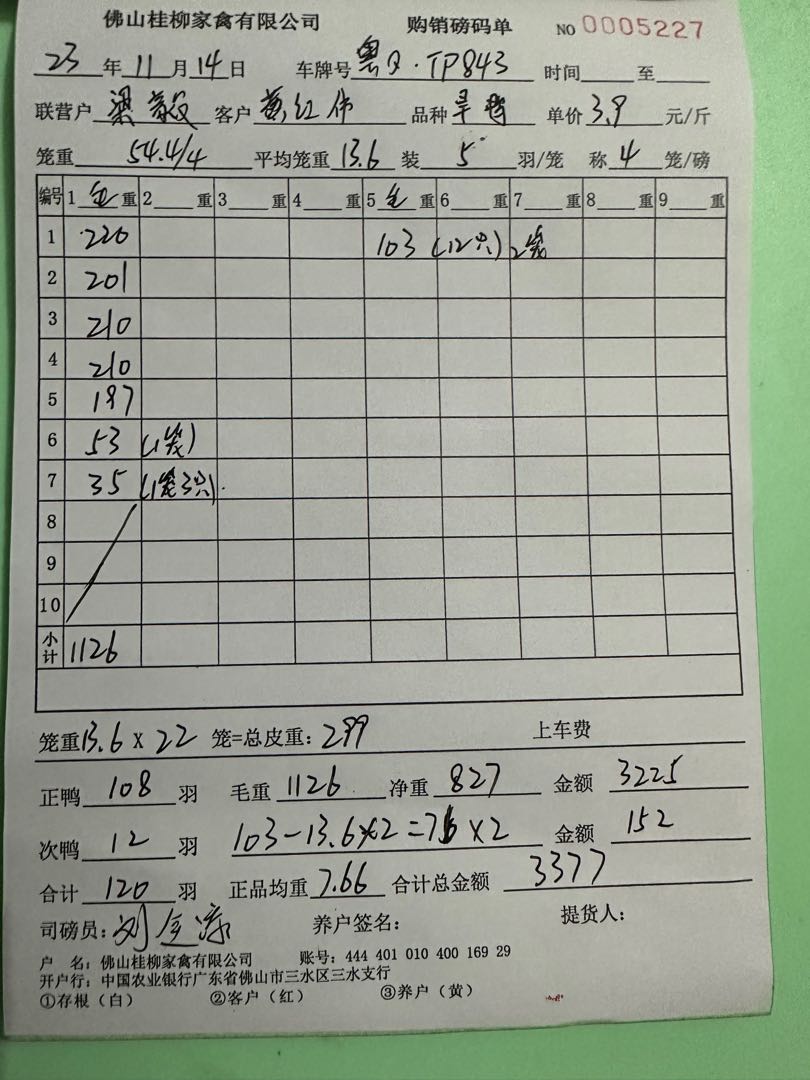 佛山桂柳家禽有限公司 购销磅码单 NO 0005227
23 年 11 月 14 日 车牌号 粤 ·TP843 时间 至
联营户 梁 客户 红伟 品种 单价 3.9 元/斤
笼重 54.4/4 平均笼重 13.6 装 5 羽/笼 称 4 笼/磅
编号 1 毛 重 2 重 3 重 4 重 5 毛 重 6 重 7 重 8 重 9 重
1 220 103 (12只) 2笼
2 201
3 210
4 210
5 197
6 53 (1笼)
7 35 (1笼3只)
8
9
10
小计 1126
笼重 13.6 X 22 笼=总皮重: 299 上车费
正鸭 108 羽 毛重 1126 净重 827 金额 3225
次鸭 12 羽 103-13.6×2=76×2 金额 152
合计 120 羽 正品均重 7.66 合计总金额 3377
司磅员: 刘 养户签名: 提货人:
户 名: 佛山桂柳家禽有限公司 账号: 444 401 010 400 169 29
开户行: 中国农业银行广东省佛山市三水区三水支行
①存根(白) ②客户(红) ③养户(黄)